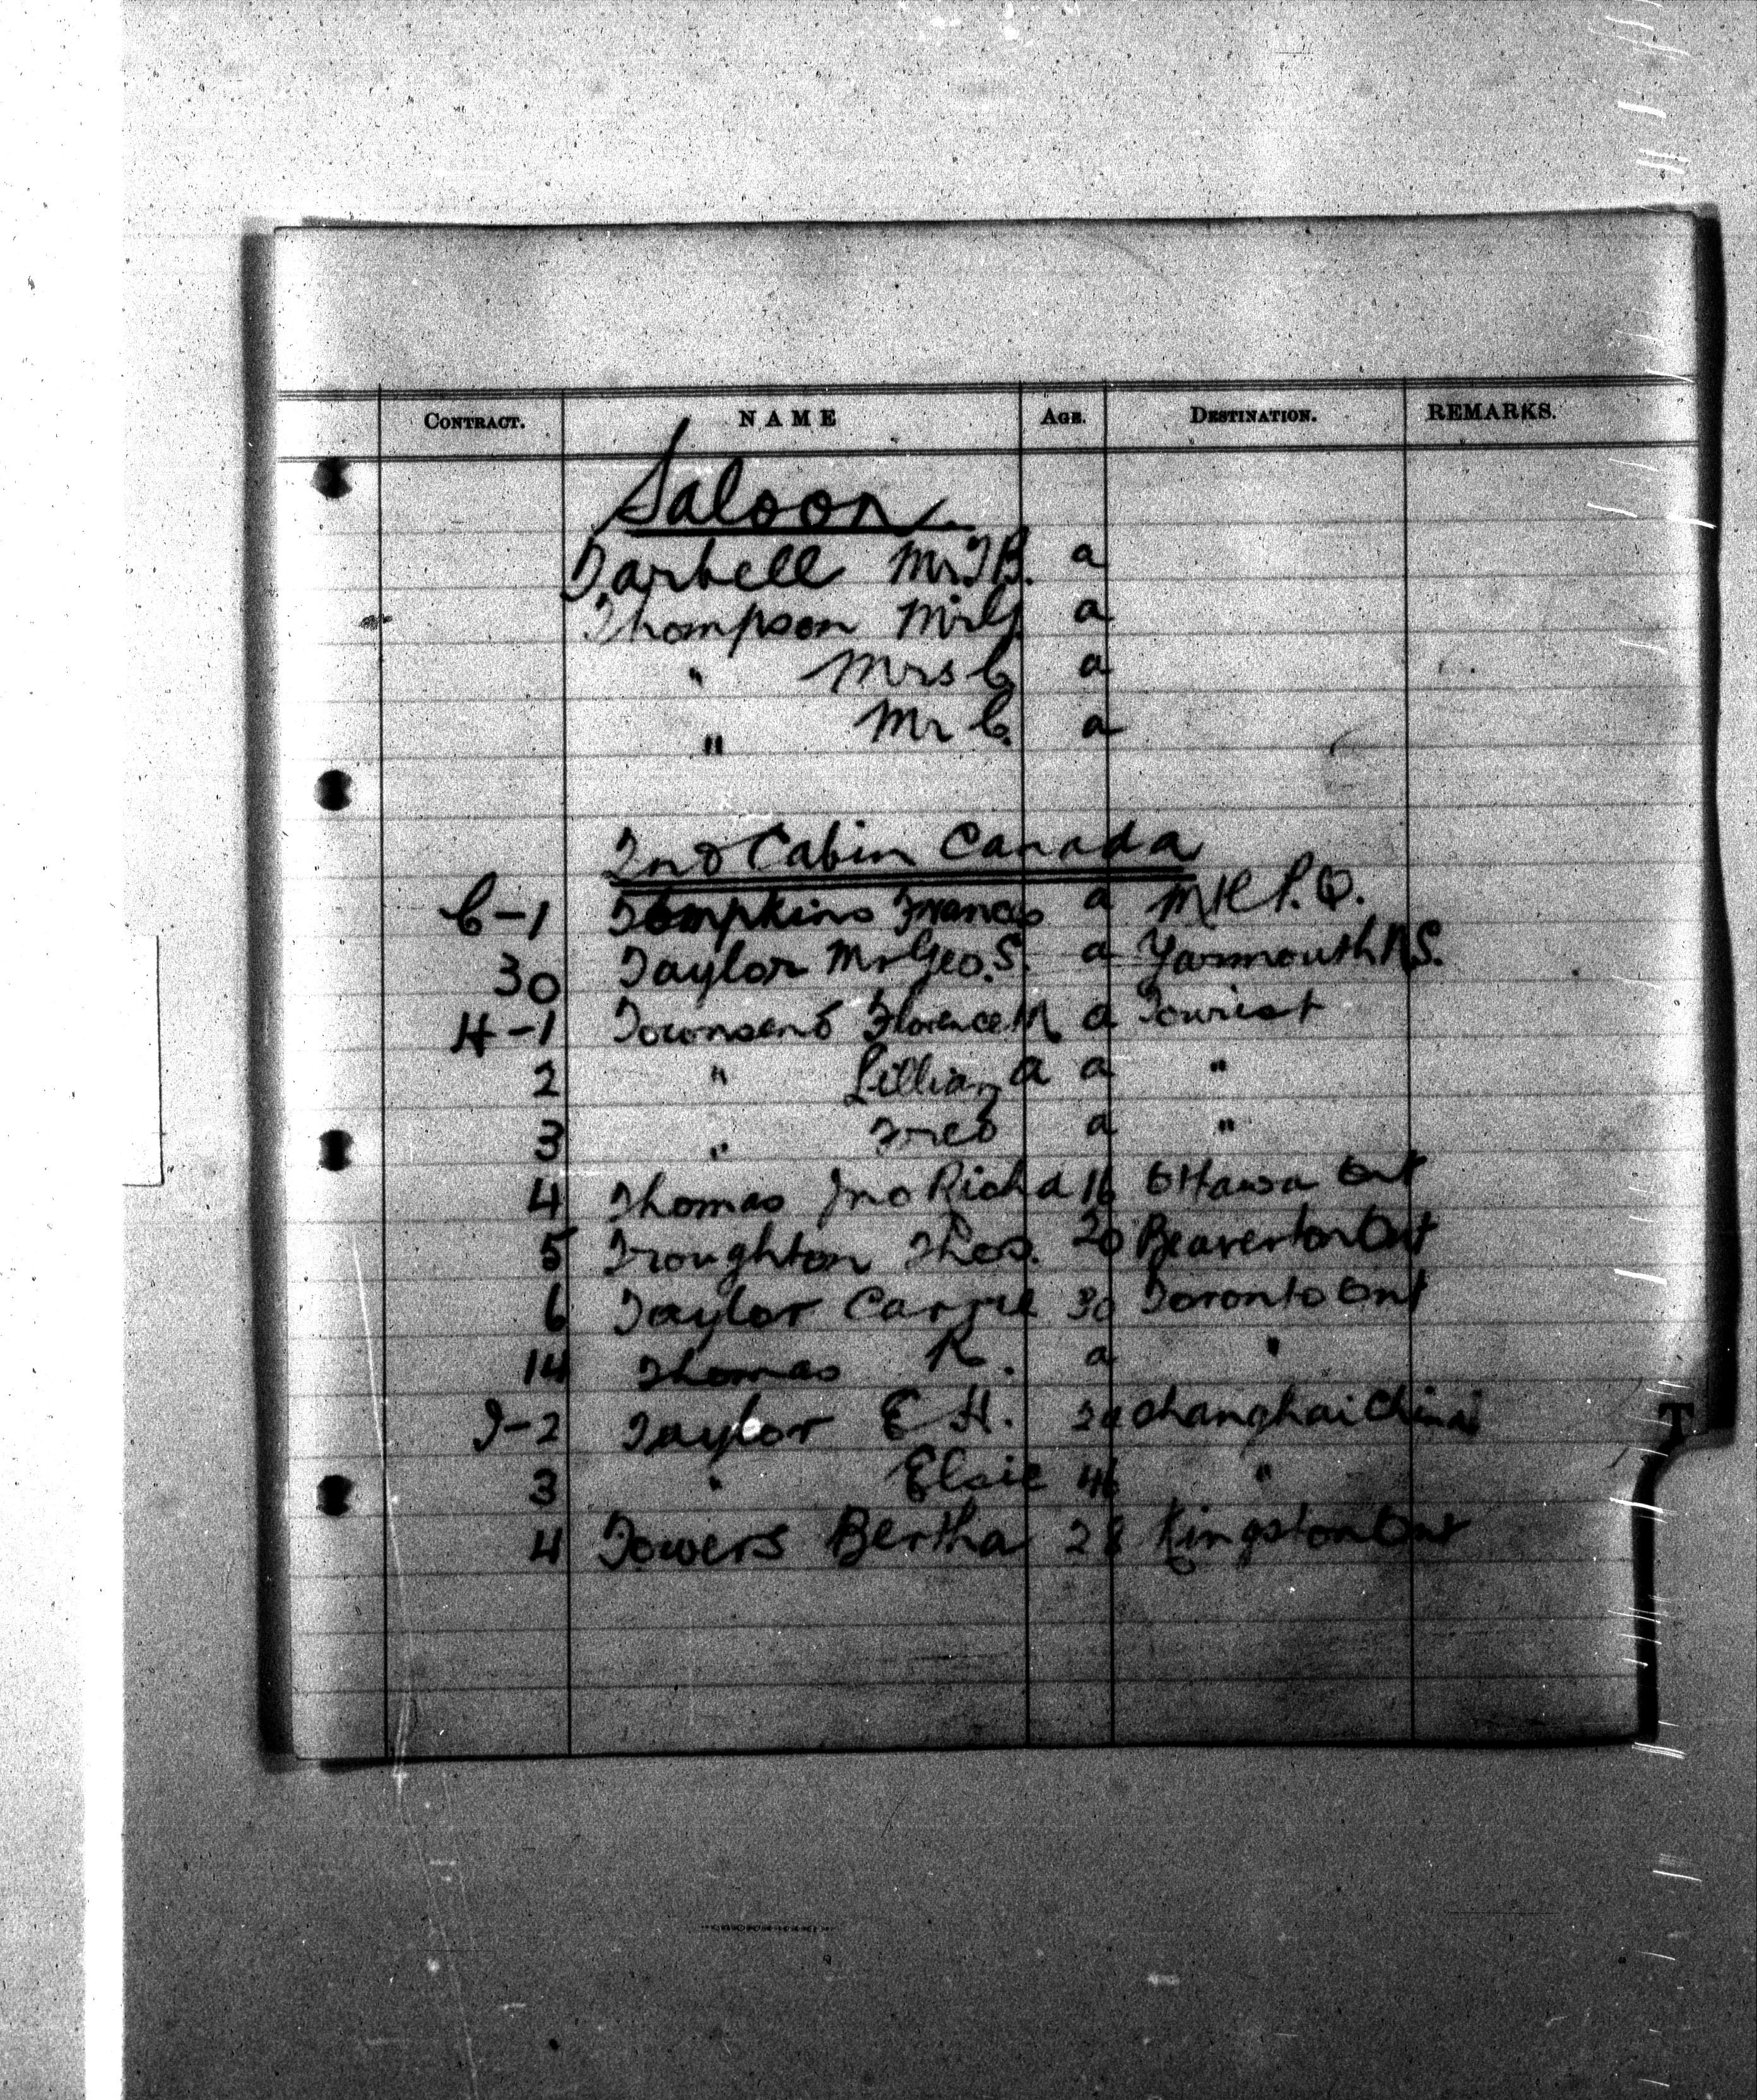 CONTRACT. NAME AGE. DESTINATION. REMARKS.
Saloon
Tarbell Mr. T B. a
Thompson Mr G. a
" Mrs C a
" Mr C. a
2nd Cabin Canada
C-1 Tompkins Francis a Mtl P.Q.
30 Taylor Mr Geo. S. a Yarmouth N.S.
H-1 Townsend Florence M a Tourist
2 " Lillian A a "
3 " Fred a "
4 Thomas Jno Richd 16 Ottawa Ont
5 Troughton Thos. 20 Beaverton Ont
6 Taylor Carrie 30 Toronto Ont
14 Thomas R. a "
I-2 Taylor E H. Shanghai China
3 " Elsie 46 "
4 Towers Bertha 28 Kingston Ont
T